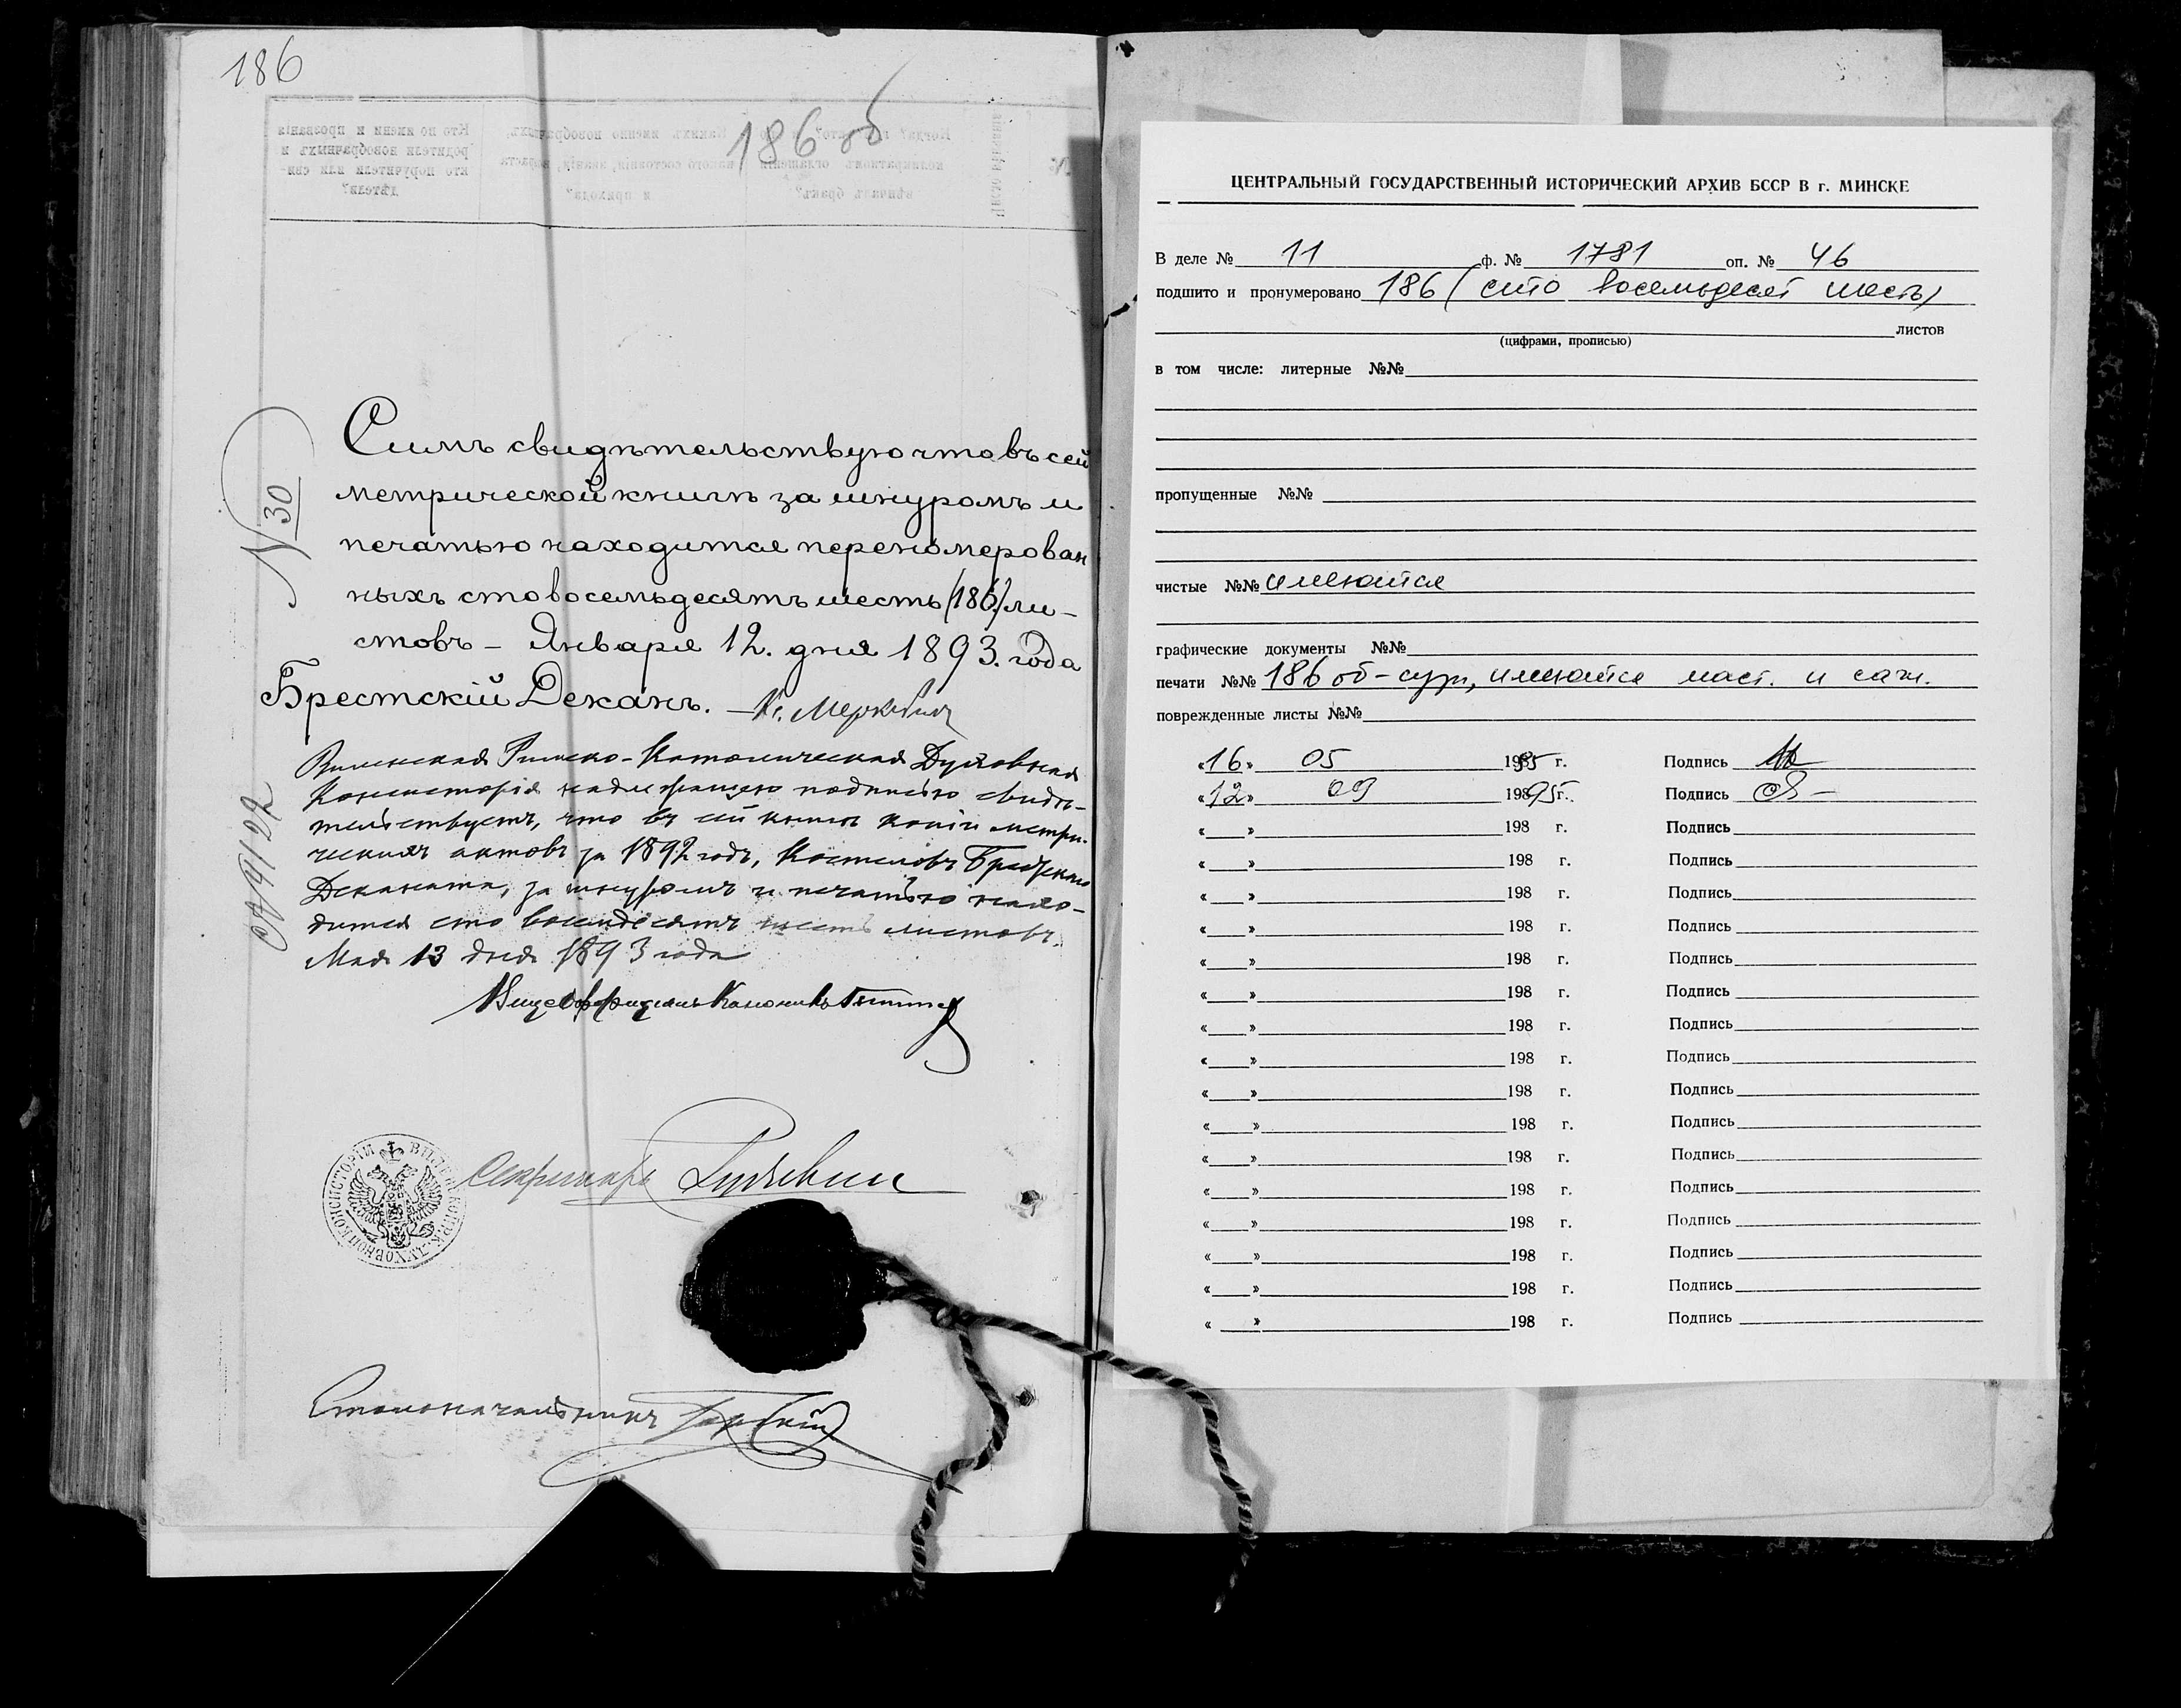 186
186 об
№ 30
Симъ свидѣтельствую что въ сей
метрической книгѣ за шнуромъ и
печатью находится переномерован
ныхъ сто восемьдесятъ шесть (186) ли-
стовъ – Января 12. дня 1893. года
Брестскій Деканъ. – Кс. Меркевичъ
Виленская Римско-Католическая Духовная
Консисторія надлежащею подписью свидѣ-
тельствуетъ, что въ сей книгѣ копій метри-
ческихъ актовъ за 1892 годъ, Костеловъ Брестскаго
Деканата, за шнуромъ и печатью нахо-
дится сто восемдесятъ шесть листовъ.
Мая 13 дня 1893 года
Вицеоффиціалъ Каноникъ
Секретарь
Столоначальникъ
ЦЕНТРАЛЬНЫЙ ГОСУДАРСТВЕННЫЙ ИСТОРИЧЕСКИЙ АРХИВ БССР В г. МИНСКЕ
В деле № 11 ф. № 1781 оп. № 46
подшито и пронумеровано 186 (сто восемьдесят шесть)
листов
(цифрами, прописью)
в том числе: литерные №№
пропущенные №№
чистые №№ имеются
графические документы №№
печати №№ 186 об – сург., имеются маст. и саж.
поврежденные листы №№
«16» 05 1985 г. Подпись
«12» 09 1995 г. Подпись
« » 198 г. Подпись
« » 198 г. Подпись
« » 198 г. Подпись
« » 198 г. Подпись
« » 198 г. Подпись
« » 198 г. Подпись
« » 198 г. Подпись
« » 198 г. Подпись
« » 198 г. Подпись
« » 198 г. Подпись
« » 198 г. Подпись
« » 198 г. Подпись
« » 198 г. Подпись
« » 198 г. Подпись
« » 198 г. Подпись
« » 198 г. Подпись